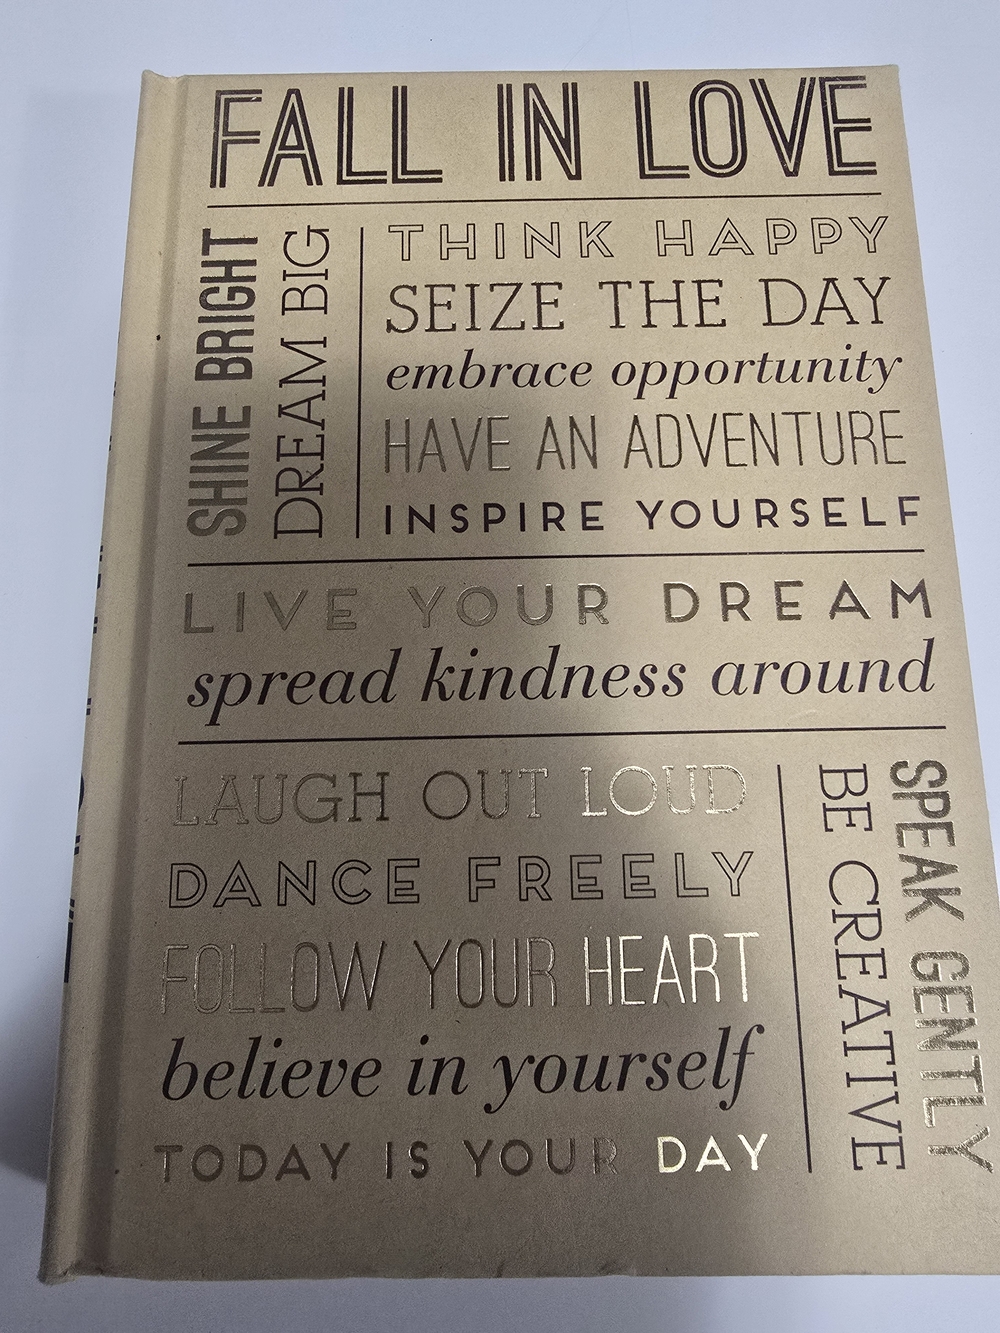 FALL IN LOVE
SHINE BRIGHT
DREAM BIG
THINK HAPPY
SEIZE THE DAY
embrace opportunity
HAVE AN ADVENTURE
INSPIRE YOURSELF
LIVE YOUR DREAM
spread kindness around
LAUGH OUT LOUD
DANCE FREELY
FOLLOW YOUR HEART
believe in yourself
TODAY IS YOUR DAY
BE CREATIVE
SPEAK GENTLY